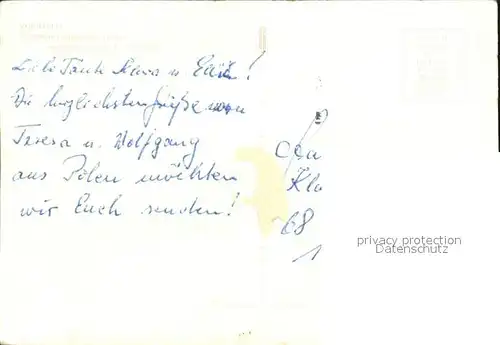 Liebe Tante Klara u.
Die herzlichsten Grüße von
Teresa u. Wolfgang
aus Polen möchten
wir Euch senden!
Kla
68
1
privacy protection
Datenschutz